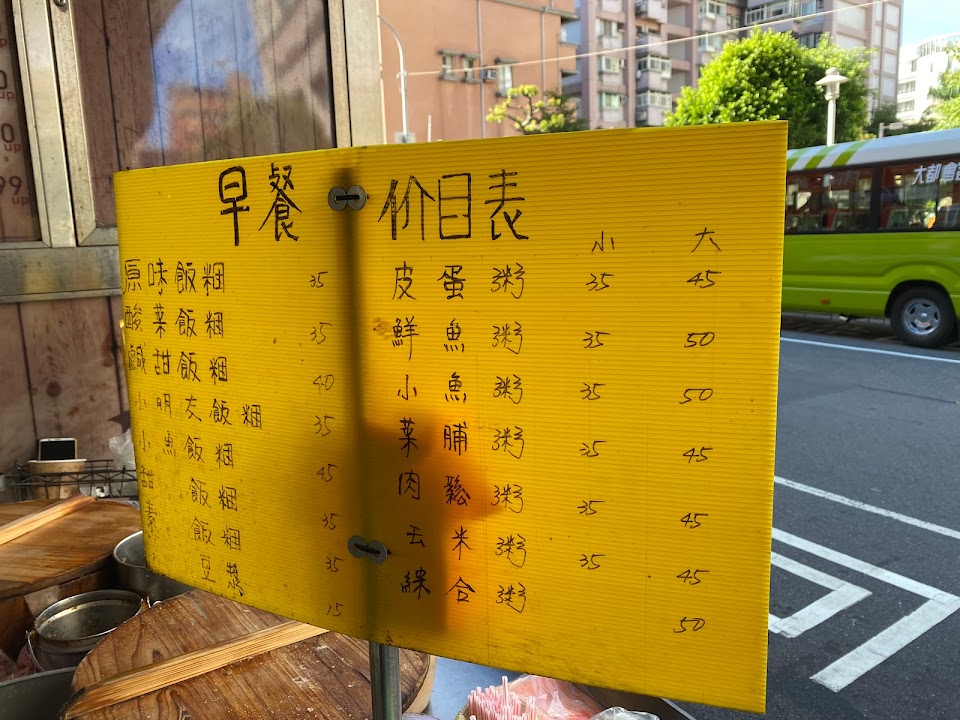 早餐 价目表
原味飯糰 35
酸菜飯糰 35
鹹甜飯糰 40
小明友飯糰 35
小魚飯糰 45
甜 飯糰 35
素 飯糰 35
豆漿 15
小 大
皮蛋粥 35 45
鮮魚粥 35 50
小魚粥 35 50
菜脯粥 35 45
肉鬆粥 35 45
玉米粥 35 45
綜合粥 50
大都會